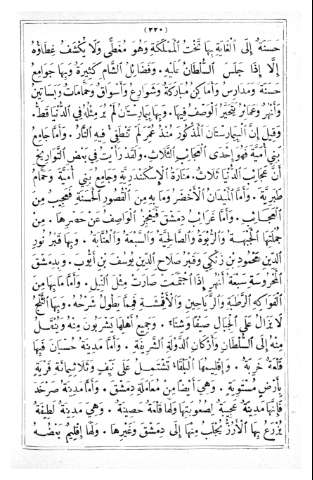 (٢٢٠)
حَسَنَةٌ إِلَى الْغَايَةِ بِهَا تَخْتُ الْمَمْلَكَةِ وَهُوَ مُغَطًّى وَلَا يُكْشَفُ غِطَاؤُهُ
إِلَّا إِذَا جَلَسَ السُّلْطَانُ عَلَيْهِ. وَفَضَائِلُ الشَّامِ كَثِيرَةٌ وَبِهَا جَوَامِعُ
حَسَنَةٌ وَمَدَارِسُ وَأَمَاكِنُ مُبَارَكَةٌ وَشَوَارِعُ وَأَسْوَاقٌ وَحَمَّامَاتٌ وَبَسَاتِينُ
وَأَنْهُرٌ وَعَمَائِرُ يَتَحَيَّرُ الْوَصْفُ فِيهَا. وَبِهَا بِيمَارِسْتَانُ لَمْ يُرَ مِثْلُهُ فِي الدُّنْيَا قَطُّ.
وَقِيلَ إِنَّ الْبِيمَارِسْتَانَ الْمَذْكُورَ مُنْذُ عُمِرَ لَمْ تَنْطَفِئْ فِيهِ النَّارُ. وَأَمَّا جَامِعُ
بَنِي أُمَيَّةَ فَهُوَ إِحْدَى الْعَجَائِبِ الثَّلَاثِ. وَلَقَدْ رَأَيْتُ فِي بَعْضِ التَّوَارِيخِ
أَنَّ عَجَائِبَ الدُّنْيَا ثَلَاثٌ. مَنَارَةُ الْإِسْكَنْدَرِيَّةِ وَجَامِعُ بَنِي أُمَيَّةَ وَحَمَّامُ
طَبَرِيَّةَ. وَأَمَّا الْمَيْدَانُ الْأَخْضَرُ وَمَا بِهِ مِنَ الْقُصُورِ الْحَسَنَةِ فَعَجِيبٌ مِنَ
الْعَجَائِبِ. وَأَمَّا غَرَائِبُ دِمَشْقَ فَيَعْجِزُ الْوَاصِفُ عَنْ حَصْرِهَا. مِنْ
جُمْلَتِهَا الْجَبْهَةُ وَالرَّبْوَةُ وَالصَّالِحِيَّةُ وَالسَّبْعَةُ وَالْعُنَّابَةُ. وَبِهَا قَبْرُ نُورِ
الدِّينِ مَحْمُودِ بْنِ زَنْكِي وَقَبْرُ صَلَاحِ الدِّينِ يُوسُفَ بْنِ أَيُّوبَ. وَبِدِمَشْقَ
الْمَحْرُوسَةِ سَبْعَةُ أَنْهُرٍ إِذَا اجْتَمَعَتْ صَارَتْ مِثْلَ النِّيلِ. وَأَمَّا مَا بِهَا مِنَ
الْفَوَاكِهِ الرَّطْبَةِ وَالرَّيَاحِينِ وَالْأَقْمِشَةِ فِيمَا يَطُولُ شَرْحُهُ. وَبِهَا الثَّلْجُ
لَا يَزَالُ عَلَى الْجِبَالِ صَيْفًا وَشِتَاءً. وَجَمِيعُ أَهْلِهَا يَشْرَبُونَ مِنْهُ وَيُنْقَلُ
مِنْهُ إِلَى السُّلْطَانِ وَأَرْكَانِ الدَّوْلَةِ الشَّرِيفَةِ. وَأَمَّا مَدِينَةُ حُسْبَانَ فِيهَا
قَلْعَةٌ خَرِبَةٌ. وَإِقْلِيمُهَا الْبَلْقَاءُ تَشْتَمِلُ عَلَى نَيِّفٍ وَثَلَاثِمِائَةِ قَرْيَةٍ
بِأَرْضٍ مُسْتَوِيَةٍ. وَهِيَ أَيْضًا مِنْ مُعَامَلَةِ دِمَشْقَ. وَأَمَّا مَدِينَةُ صَرْخَدَ
فَإِنَّهَا مَدِينَةٌ عَجِيبَةٌ لِصُعُوبَتِهَا وَلَهَا قَلْعَةٌ حَصِينَةٌ. وَهِيَ مَدِينَةٌ لَطِيفَةٌ
يُزْرَعُ بِهَا الْأَرُزُّ يُجْلَبُ مِنْهَا إِلَى دِمَشْقَ وَغَيْرِهَا. وَلَهَا إِقْلِيمٌ بَعْضُهُ